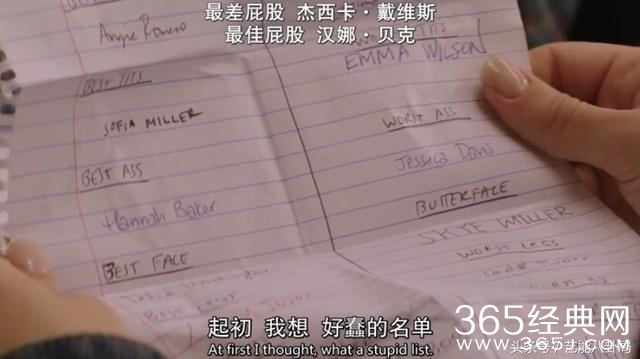 最差屁股 杰西卡·戴维斯
最佳屁股 汉娜·贝克
Angie Romero
BEST TITS
SOFIA MILLER
BEST ASS
Hannah Baker
BEST FACE
TITS
EMMA WILSON
WORST ASS
Jessica Davis
BUTTERFACE
SKYE MILLER
WORST LEGS
起初 我想 好蠢的名单
At first I thought, what a stupid list.
365经典网
www.365jz.com